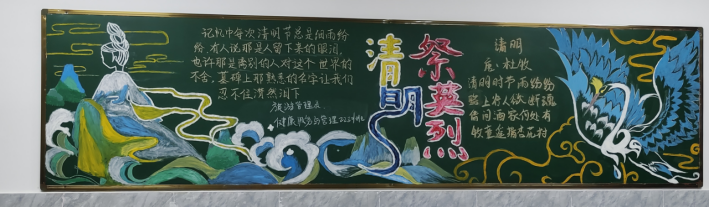 记忆中每次清明节总是细雨纷
纷,有人说那是人留下来的眼泪,
也许那是离别的人对这个世界的
不舍,墓碑上那熟悉的名字让我们
忍不住潸然泪下
旅游管理系
清明
祭英烈
清明
唐·杜牧
清明时节雨纷纷
路上行人欲断魂
借问酒家何处有
牧童遥指杏花村